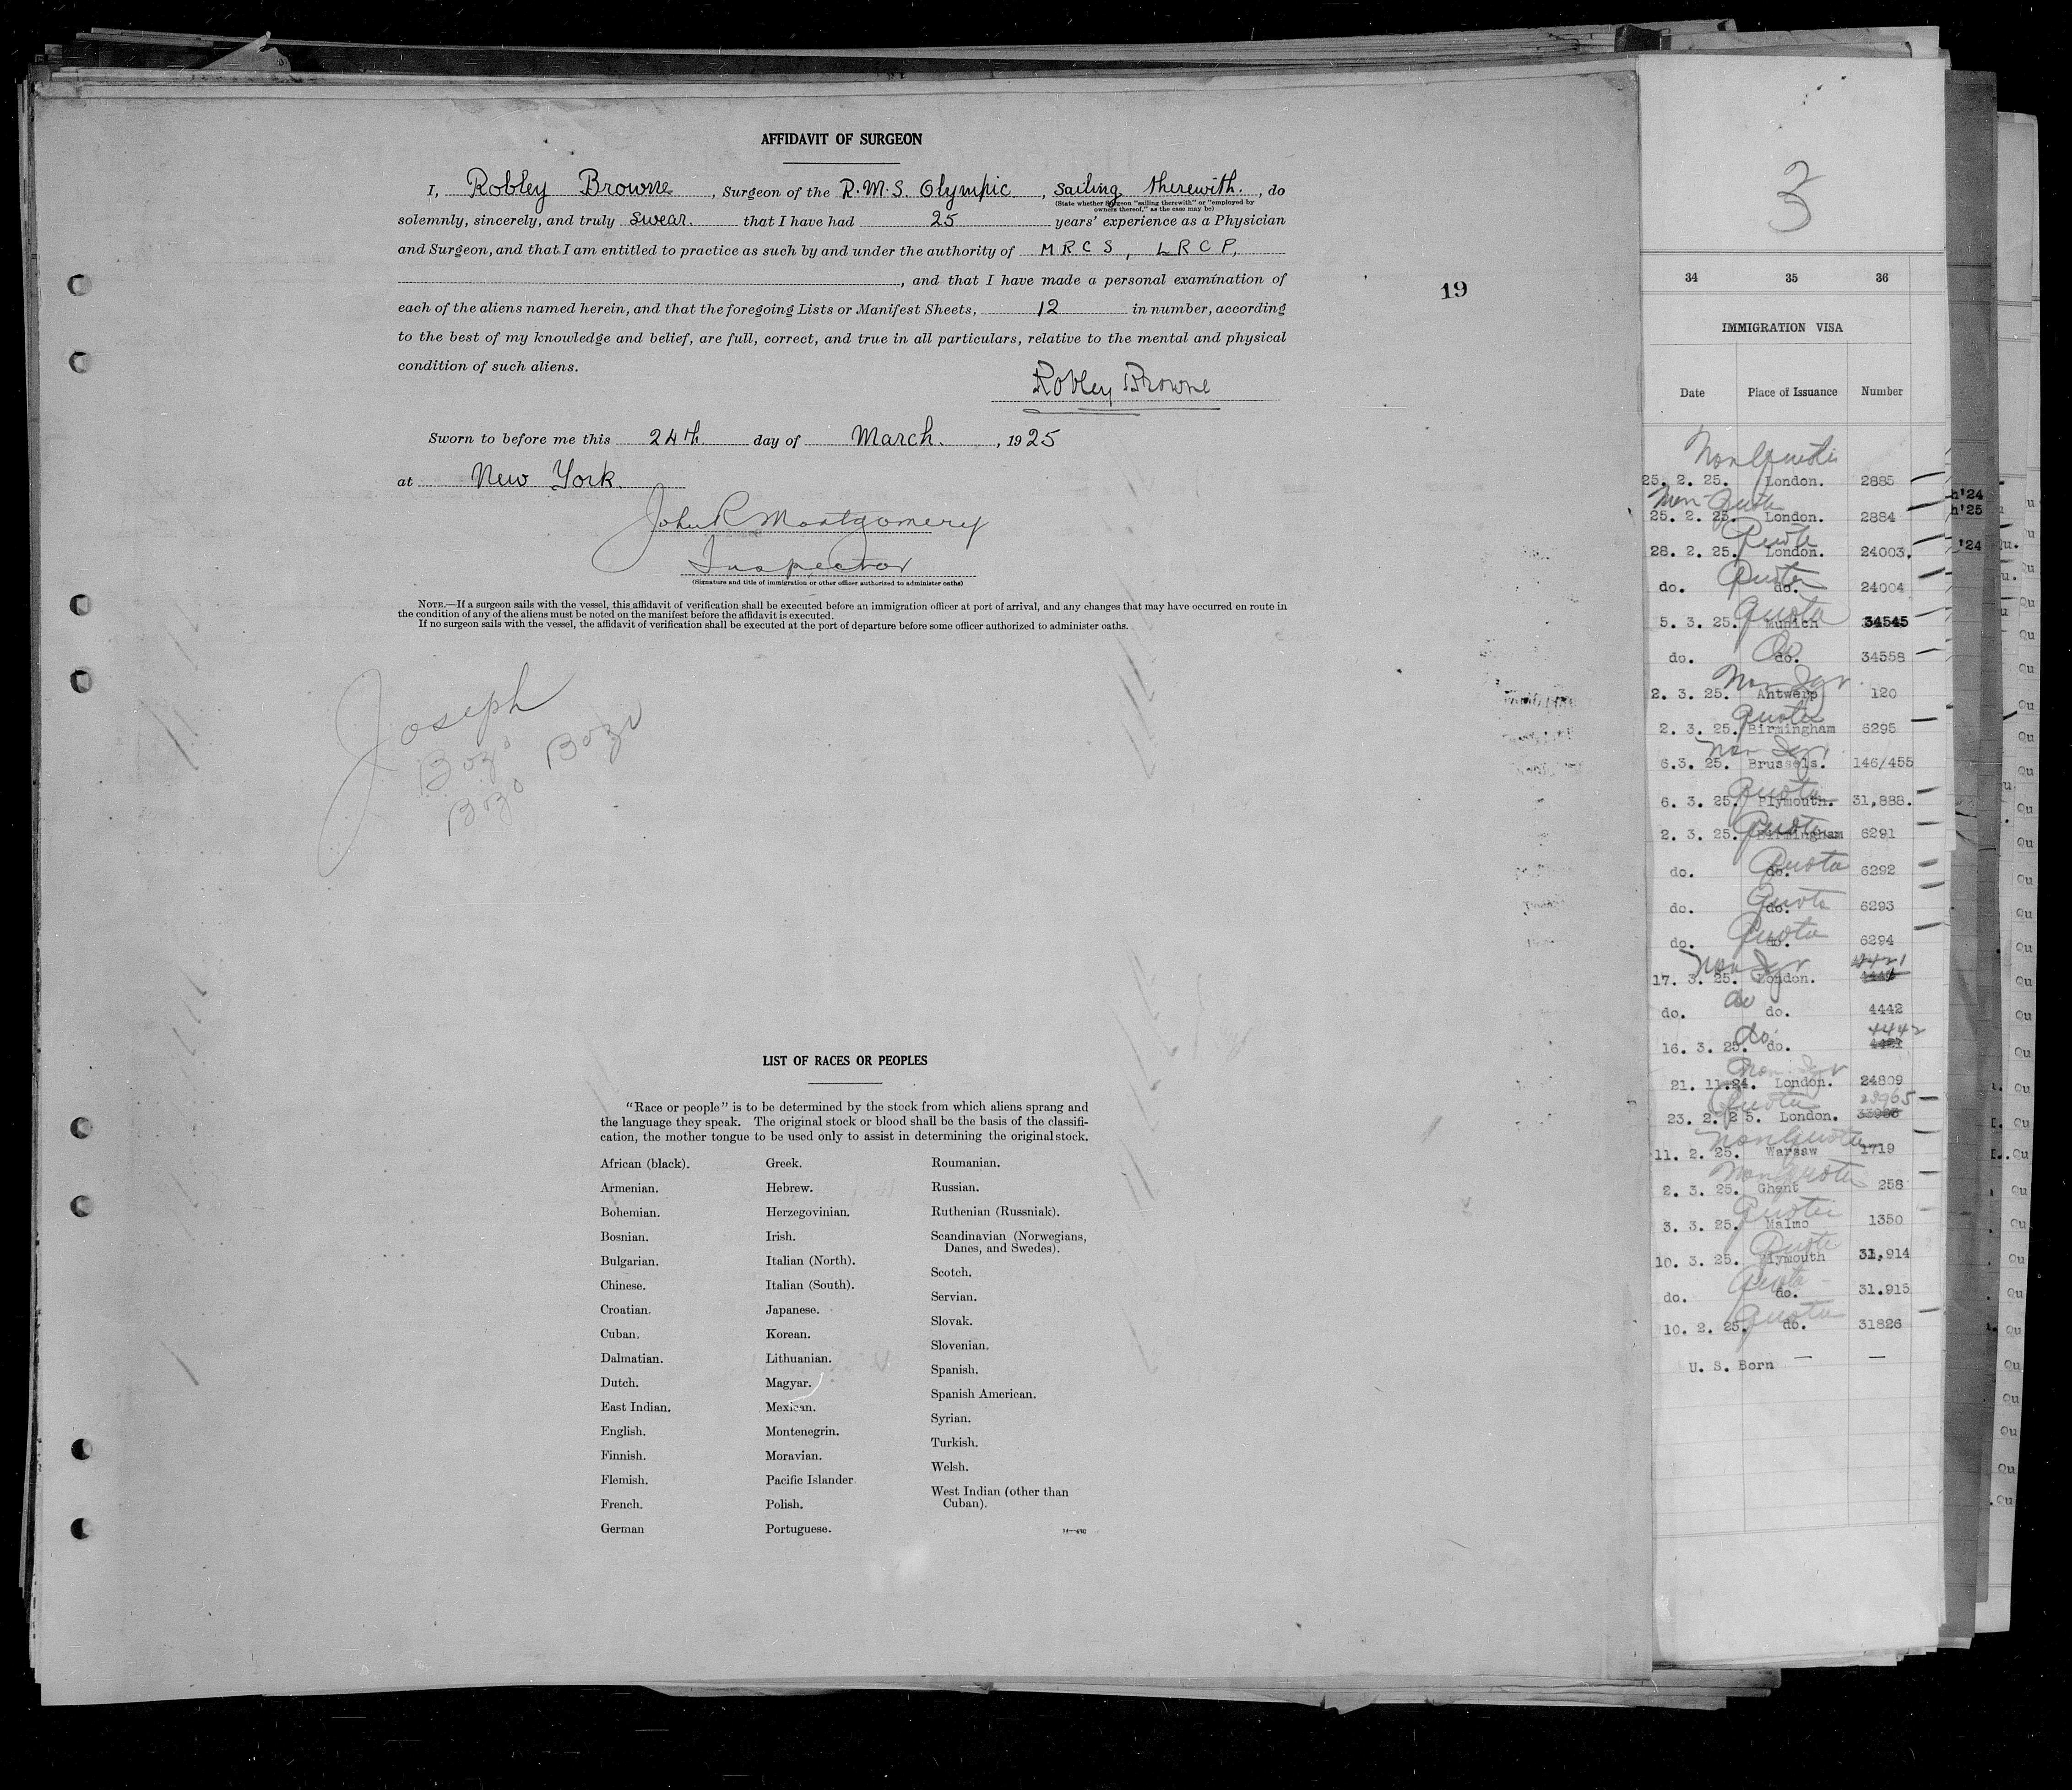 AFFIDAVIT OF SURGEON
I, Robley Browne, Surgeon of the R.M.S. Olympic, Sailing therewith., do
(State whether Surgeon "sailing therewith" or "employed by
owners thereof," as the case may be)
solemnly, sincerely, and truly swear. that I have had 25 years' experience as a Physician
and Surgeon, and that I am entitled to practice as such by and under the authority of MRCS, LRCP,
, and that I have made a personal examination of
each of the aliens named herein, and that the foregoing Lists or Manifest Sheets, 12 in number, according
to the best of my knowledge and belief, are full, correct, and true in all particulars, relative to the mental and physical
condition of such aliens.
Robley Browne
Sworn to before me this 24th. day of March., 1925
at New York.
John R Montgomery
Inspector
(Signature and title of immigration or other officer authorized to administer oaths)
NOTE.—If a surgeon sails with the vessel, this affidavit of verification shall be executed before an immigration officer at port of arrival, and any changes that may have occurred en route in
the condition of any of the aliens must be noted on the manifest before the affidavit is executed.
If no surgeon sails with the vessel, the affidavit of verification shall be executed at the port of departure before some officer authorized to administer oaths.
19
Joseph
Bozo Bozo
Bozo
LIST OF RACES OR PEOPLES
"Race or people" is to be determined by the stock from which aliens sprang and
the language they speak. The original stock or blood shall be the basis of the classifi-
cation, the mother tongue to be used only to assist in determining the original stock.
African (black).
Armenian.
Bohemian.
Bosnian.
Bulgarian.
Chinese.
Croatian.
Cuban.
Dalmatian.
Dutch.
East Indian.
English.
Finnish.
Flemish.
French.
German
Greek.
Hebrew.
Herzegovinian.
Irish.
Italian (North).
Italian (South).
Japanese.
Korean.
Lithuanian.
Magyar.
Mexican.
Montenegrin.
Moravian.
Pacific Islander
Polish.
Portuguese.
Roumanian.
Russian.
Ruthenian (Russniak).
Scandinavian (Norwegians,
Danes, and Swedes).
Scotch.
Servian.
Slovak.
Slovenian.
Spanish.
Spanish American.
Syrian.
Turkish.
Welsh.
West Indian (other than
Cuban).
3
34 35 36
IMMIGRATION VISA
Date Place of Issuance Number
Non Quota
25. 2. 25. London. 2885
Non-Quota
25. 2. 25. London. 2884
Quota
28. 2. 25. London. 24003.
Quota
do. do. 24004
Quota
5. 3. 25. Munich 34545
Do
do. do. 34558
2. 3. 25. Antwerp 120
Quota
2. 3. 25. Birmingham 6295
6.3. 25. Brussels. 146/455
Quota
6. 3. 25. Plymouth. 31,888.
Quota
2. 3. 25. Birmingham 6291
Quota
do. do. 6292
Quota
do. do. 6293
Quota
do. do. 6294
17. 3. 25. London.
do
do. do. 4442
do. 4442
16. 3. 25. do. 4421
21. 11.24. London. 24809
Quota
23. 2. 25. London.
Non Quota
11. 2. 25. Warsaw 1719
Non Quota
2. 3. 25. Ghent 258
Quota
3. 3. 25. Malmo 1350
Quota
10. 3. 25. Plymouth 31,914
Quota
do. do. 31.915
Quota
10. 2. 25. do. 31826
U. S. Born — —
h'24
h'25
'24